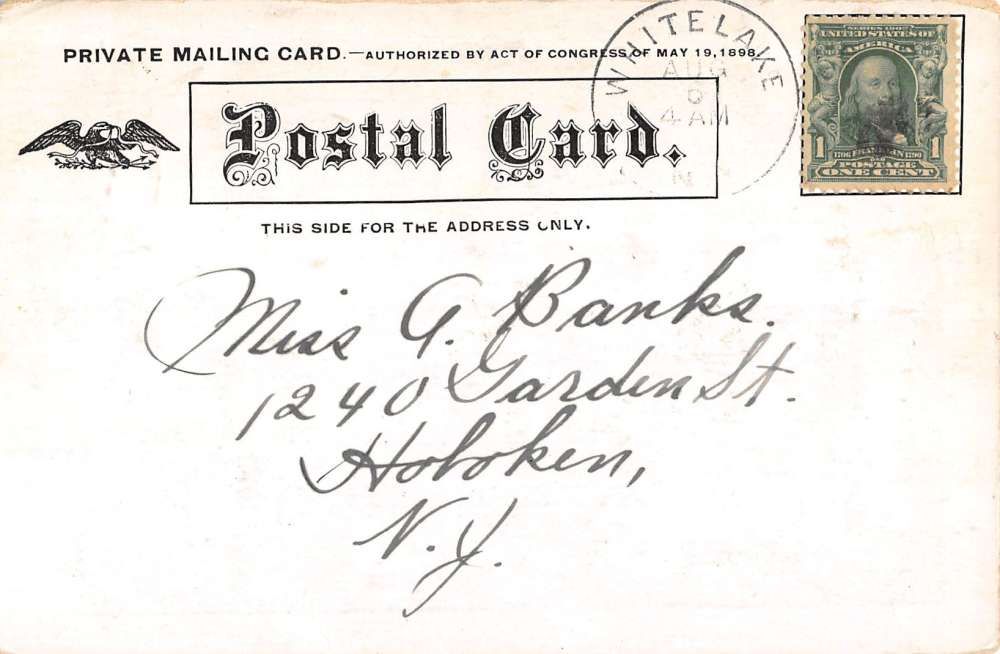 PRIVATE MAILING CARD.—AUTHORIZED BY ACT OF CONGRESS OF MAY 19, 1898.
WHITE LAKE
AUG
6
4 AM
N
SERIES 1902
UNITED STATES OF
AMERICA
1 1706 FRANKLIN 1790 1
POSTAGE
ONE CENT
Postal Card.
THIS SIDE FOR THE ADDRESS ONLY.
Miss G. Banks.
1240 Garden St.
Hoboken,
N.J.